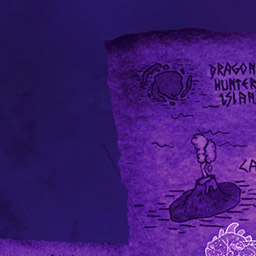 DRAGON
HUNTER
ISLAN